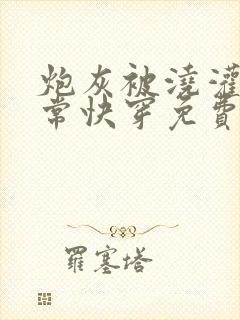 炮灰被澆灌
常快穿免費
羅塞塔